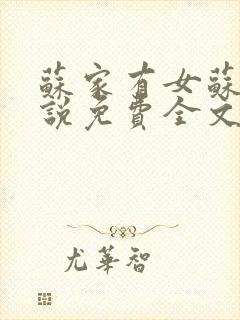 蘇家有女蘇
說免費全文
尤華智